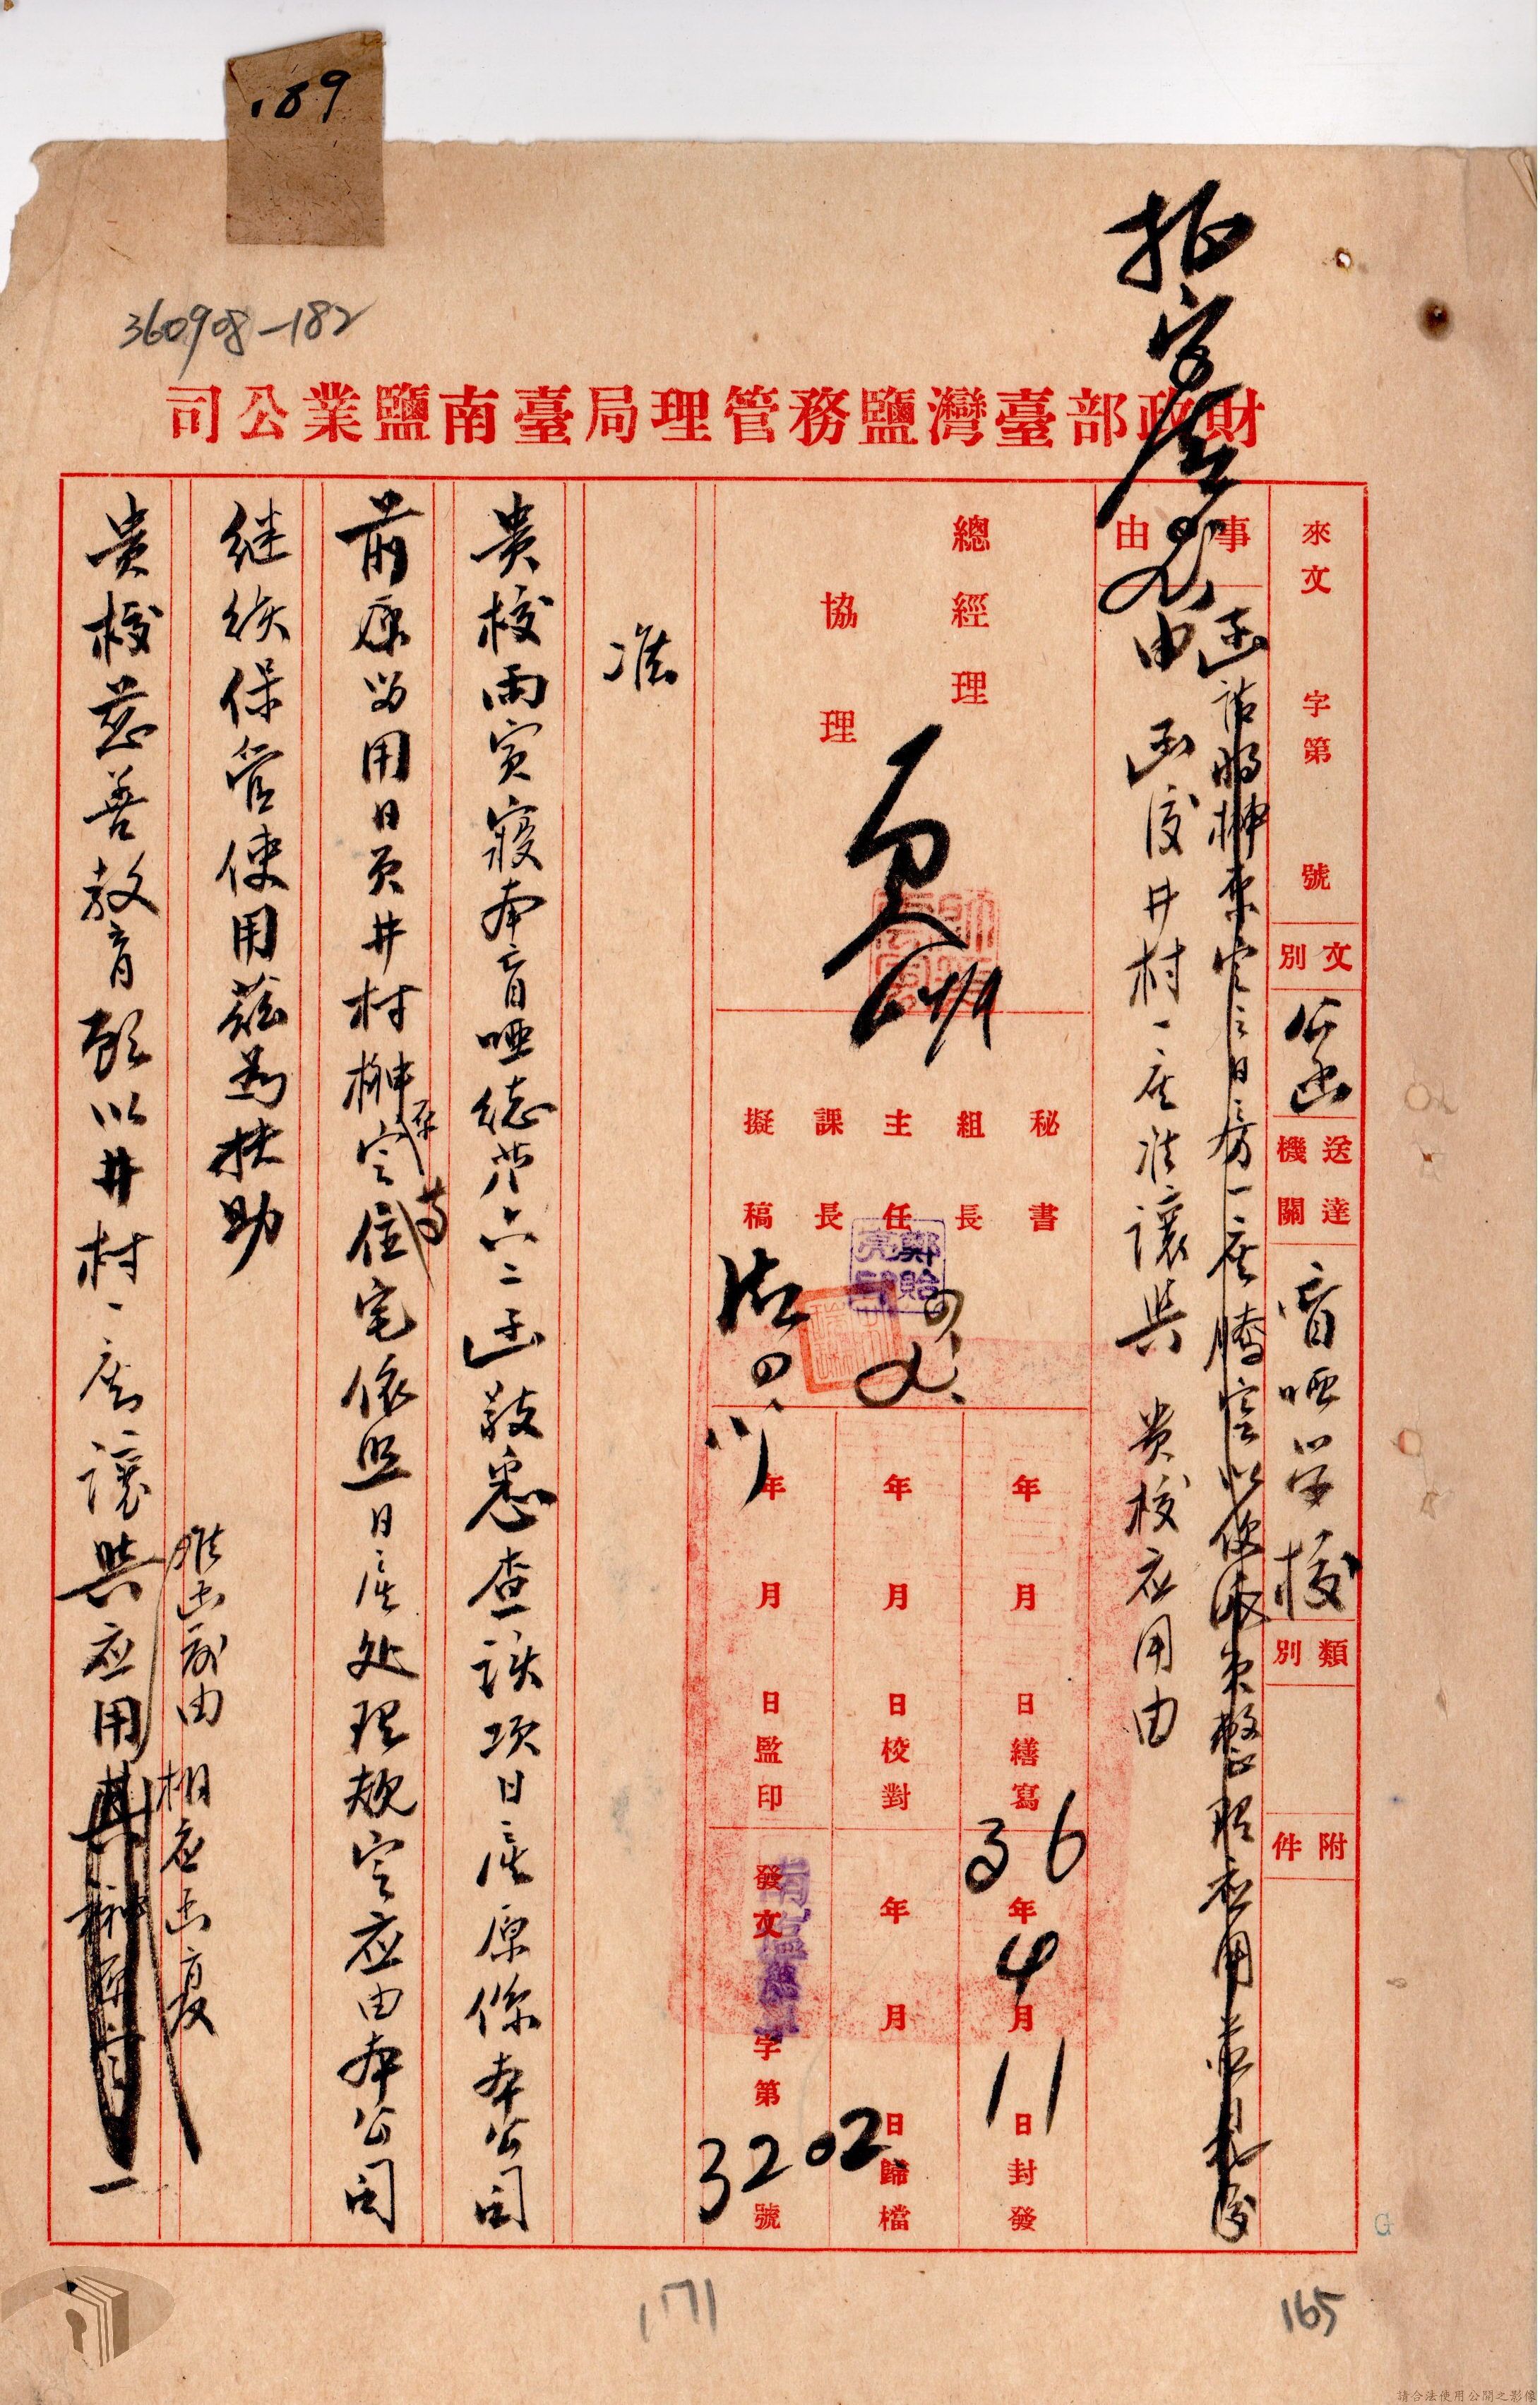 189
360908-182
財政部臺灣鹽務管理局臺南鹽業公司
來文 字第 號
文別 公函
送達機關 盲啞学校
類別
附件
事由
函 房一座騰空以便派員整理应用並見复
由
函復井村一座准讓與 貴校应用由
總經理
協理
秘書
組長
主任
課長
擬稿
鄭貽
年 月 日繕寫
年 月 日校對
年 月 日監印
36年4月11日封發
年 月 日歸檔
發文 字第3202號
准
貴校丙寅寢本盲啞總第六二函敬悉查該項日產原係本公司
前原留用日員井村榊原 住宅依照日產处理規定应由本公司
继续保管使用茲為扶助
貴校慈善教育 以井村一座讓與应用
准函前由 相应函复
171
165
G
請合法使用公開之影像